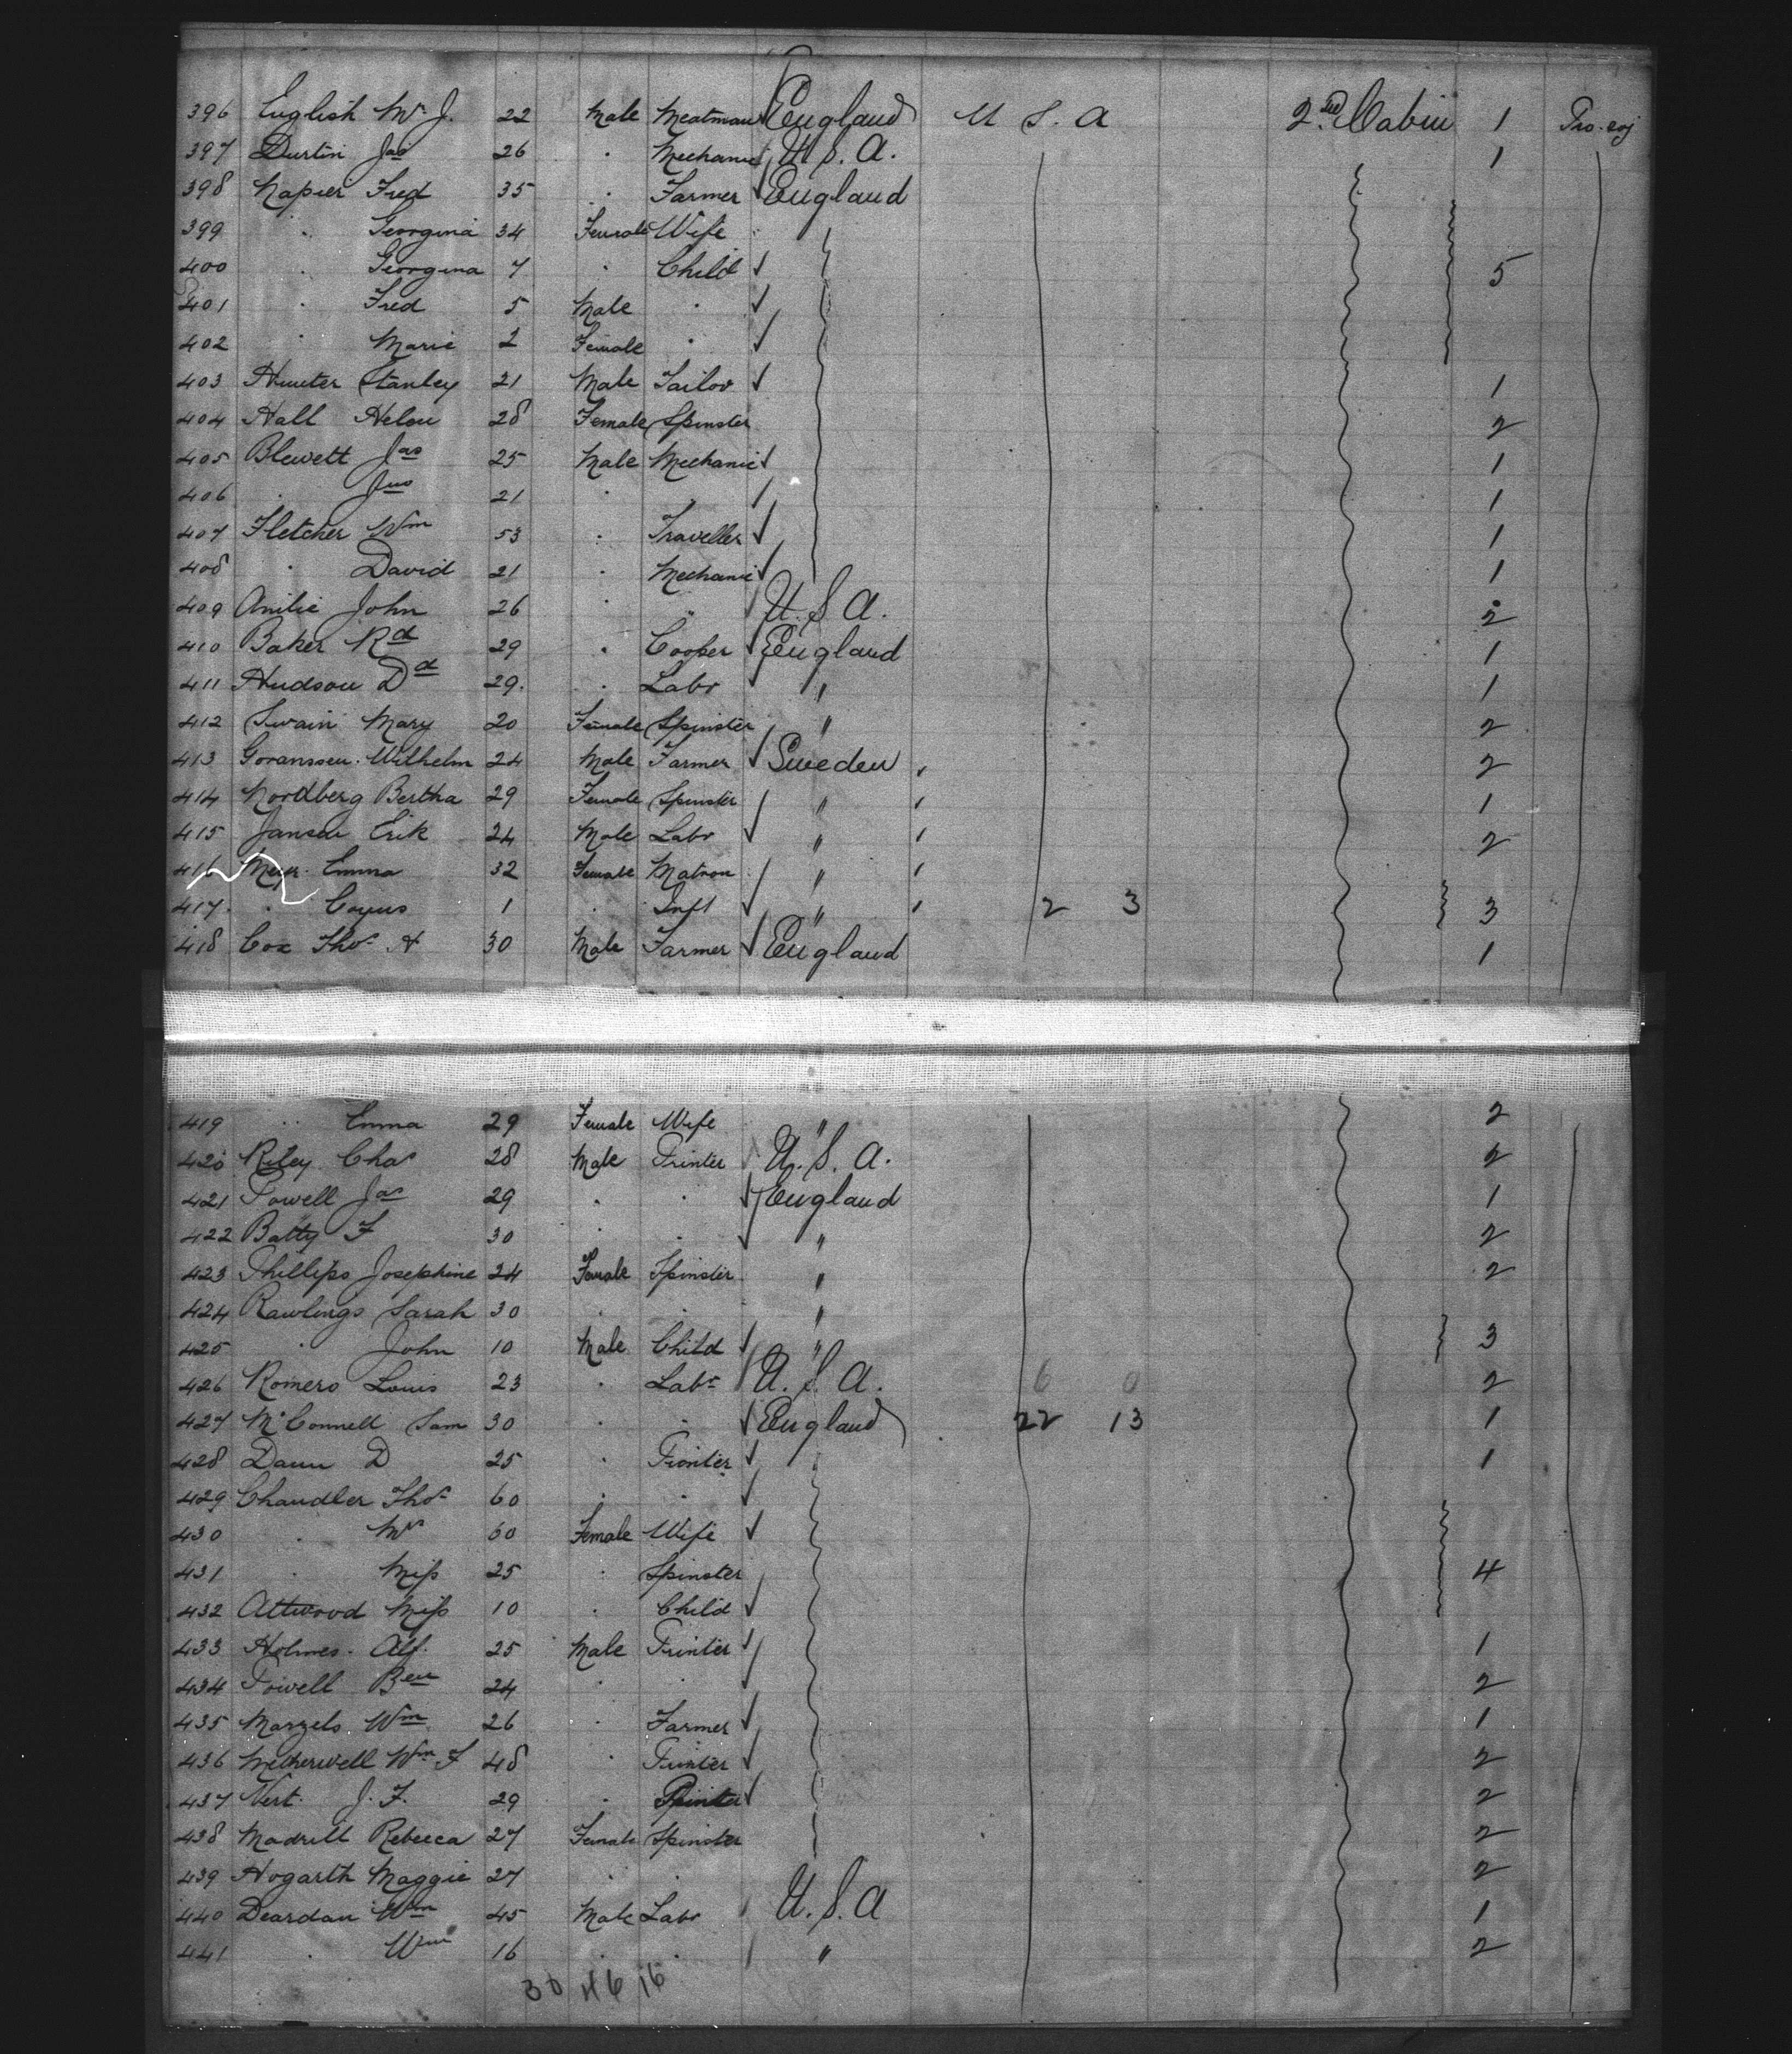 396 English Wm J. 22 Male Meatman England U S. A 2nd Cabin 1
397 Durtin Jas 26 " Mechanic U. S. A. 1
398 Napier Fred 35 " Farmer England
399 " Georgina 34 Female Wife
400 " Georgina 7 " Child 5
401 " Fred 5 Male "
402 " Marie 2 Female "
403 Hunter Stanley 21 Male Tailor 1
404 Hall Helen 28 Female Spinster 2
405 Blewett Jas 25 Male Mechanic 1
406 " Jno 21 " " 1
407 Fletcher Wm 53 " Traveller 1
408 " David 21 " Mechanic 1
409 John 26 " " U. S. A. 2
410 Baker Rd 29 " Cooper England 1
411 Hudson Dd 29. " Labr " 1
412 Swain Mary 20 Female Spinster " 2
413 Goranssen Wilhelm 24 Male Farmer Sweden 2
414 Nordberg Bertha 29 Female Spinster " 1
415 Jansen Erik 24 Male Labr " 2
416 Emma 32 Female Matron "
417 " 1 " Inft " 2 3 3
418 Cox Thos A 30 Male Farmer England 1
419 " Emma 29 Female Wife " 2
420 Riley Chas 28 Male Printer U. S. A. 2
421 Powell Jas 29 " " England 1
422 Batty F 30 " " " 2
423 Phillips Josephine 24 Female Spinster " 2
424 Rawlings Sarah 30 " " "
425 " John 10 Male Child " 3
426 Romero Louis 23 " Labr U. S. A. 6 0 2
427 McConnell Sam 30 " " England 22 13 1
428 Dann D 25 " Printer 1
429 Chandler Thos 60 " "
430 " Mrs 60 Female Wife
431 " Miss 25 " Spinster 4
432 Attwood Miss 10 " Child
433 Holmes Alf. 25 Male Printer 1
434 Powell Ben 24 " " 2
435 Marzels Wm 26 " Farmer 1
436 Wm F 48 " Printer 2
437 Vert J. F. 29 " Printer 2
438 Madrill Rebecca 27 Female Spinster 2
439 Hogarth Maggie 27 " " 2
440 Deardan Wm 45 Male Labr U. S. A 1
441 " Wm 16 " " " 2
30 46 16